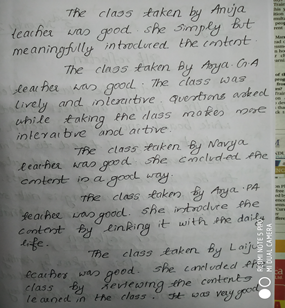 The class taken by Anuja
teacher was good she simply but
meaningfully introduced the content.
The class taken by Arya G.A
teacher was good. The class was
lively and interactive. Questions asked
while taking the class makes more
interactive and active.
The class taken by Navya
teacher was good she concluded the
content in a good way.
The class taken by Arya .P.A
teacher was good. She introduce the
content by linking it with the daily
life.
The class taken by Laiju
teacher was good. She concluded the
class by reviewing the contents
learned in the class. It was very good
REDMI NOTE 5 PRO
MI DUAL CAMERA